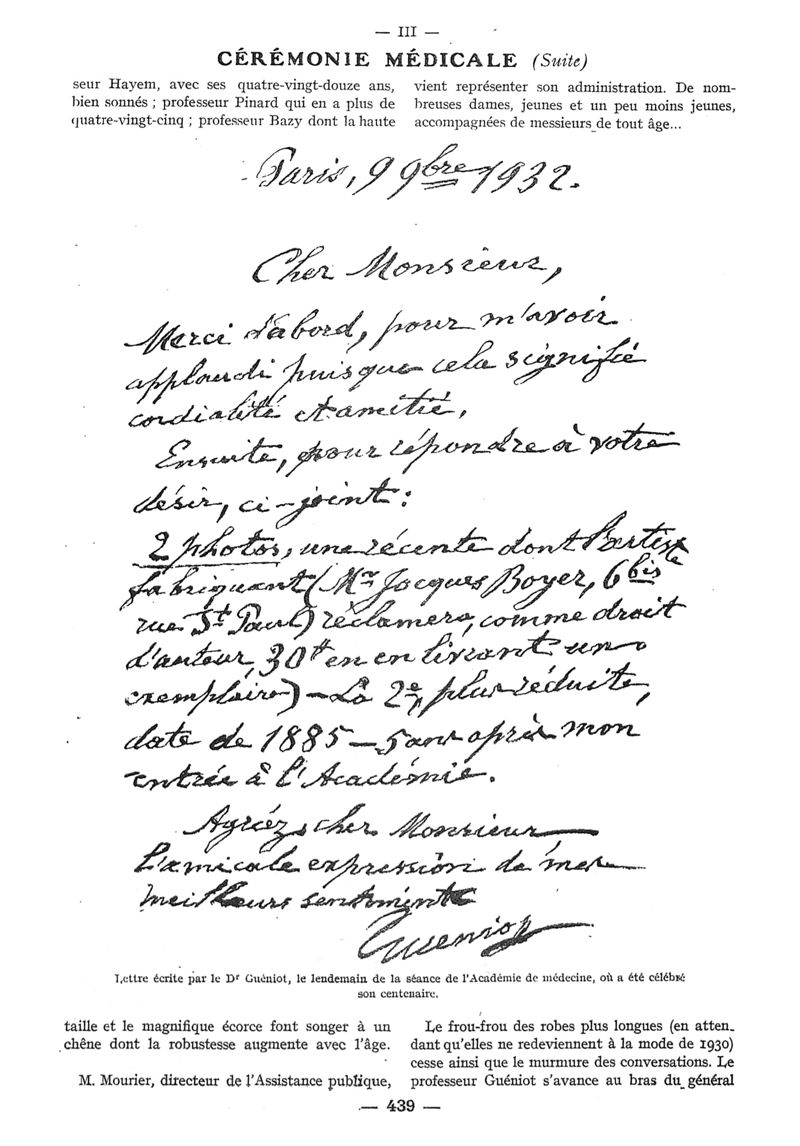 — III —
CÉRÉMONIE MÉDICALE (Suite)
seur Hayem, avec ses quatre-vingt-douze ans,
bien sonnés ; professeur Pinard qui en a plus de
quatre-vingt-cinq ; professeur Bazy dont la haute
vient représenter son administration. De nom-
breuses dames, jeunes et un peu moins jeunes,
accompagnées de messieurs de tout âge...
Paris, 9 9bre 1932.
Cher Monsieur,
Merci d'abord, pour m'avoir
applaudi puisque cela signifie
cordialité et amitié.
Ensuite, pour répondre à votre
désir, ci-joint :
2 photos, une récente dont l'artiste
fabriquant (Mr Jacques Boyer, 6bis
rue St Paul) réclamera, comme droit
d'auteur, 30 en en livrant un
exemplaire) — La 2e, plus réduite,
date de 1885 — 5 ans après mon
entrée à l'Académie.
Agréez, cher Monsieur
l'amicale expression de mes
meilleurs sentiments
Guéniot
Lettre écrite par le Dr Guéniot, le lendemain de la séance de l'Académie de médecine, où a été célébré
son centenaire.
taille et le magnifique écorce font songer à un
chêne dont la robustesse augmente avec l'âge.
M. Mourier, directeur de l'Assistance publique,
Le frou-frou des robes plus longues (en atten-
dant qu'elles ne redeviennent à la mode de 1930)
cesse ainsi que le murmure des conversations. Le
professeur Guéniot s'avance au bras du général
— 439 —